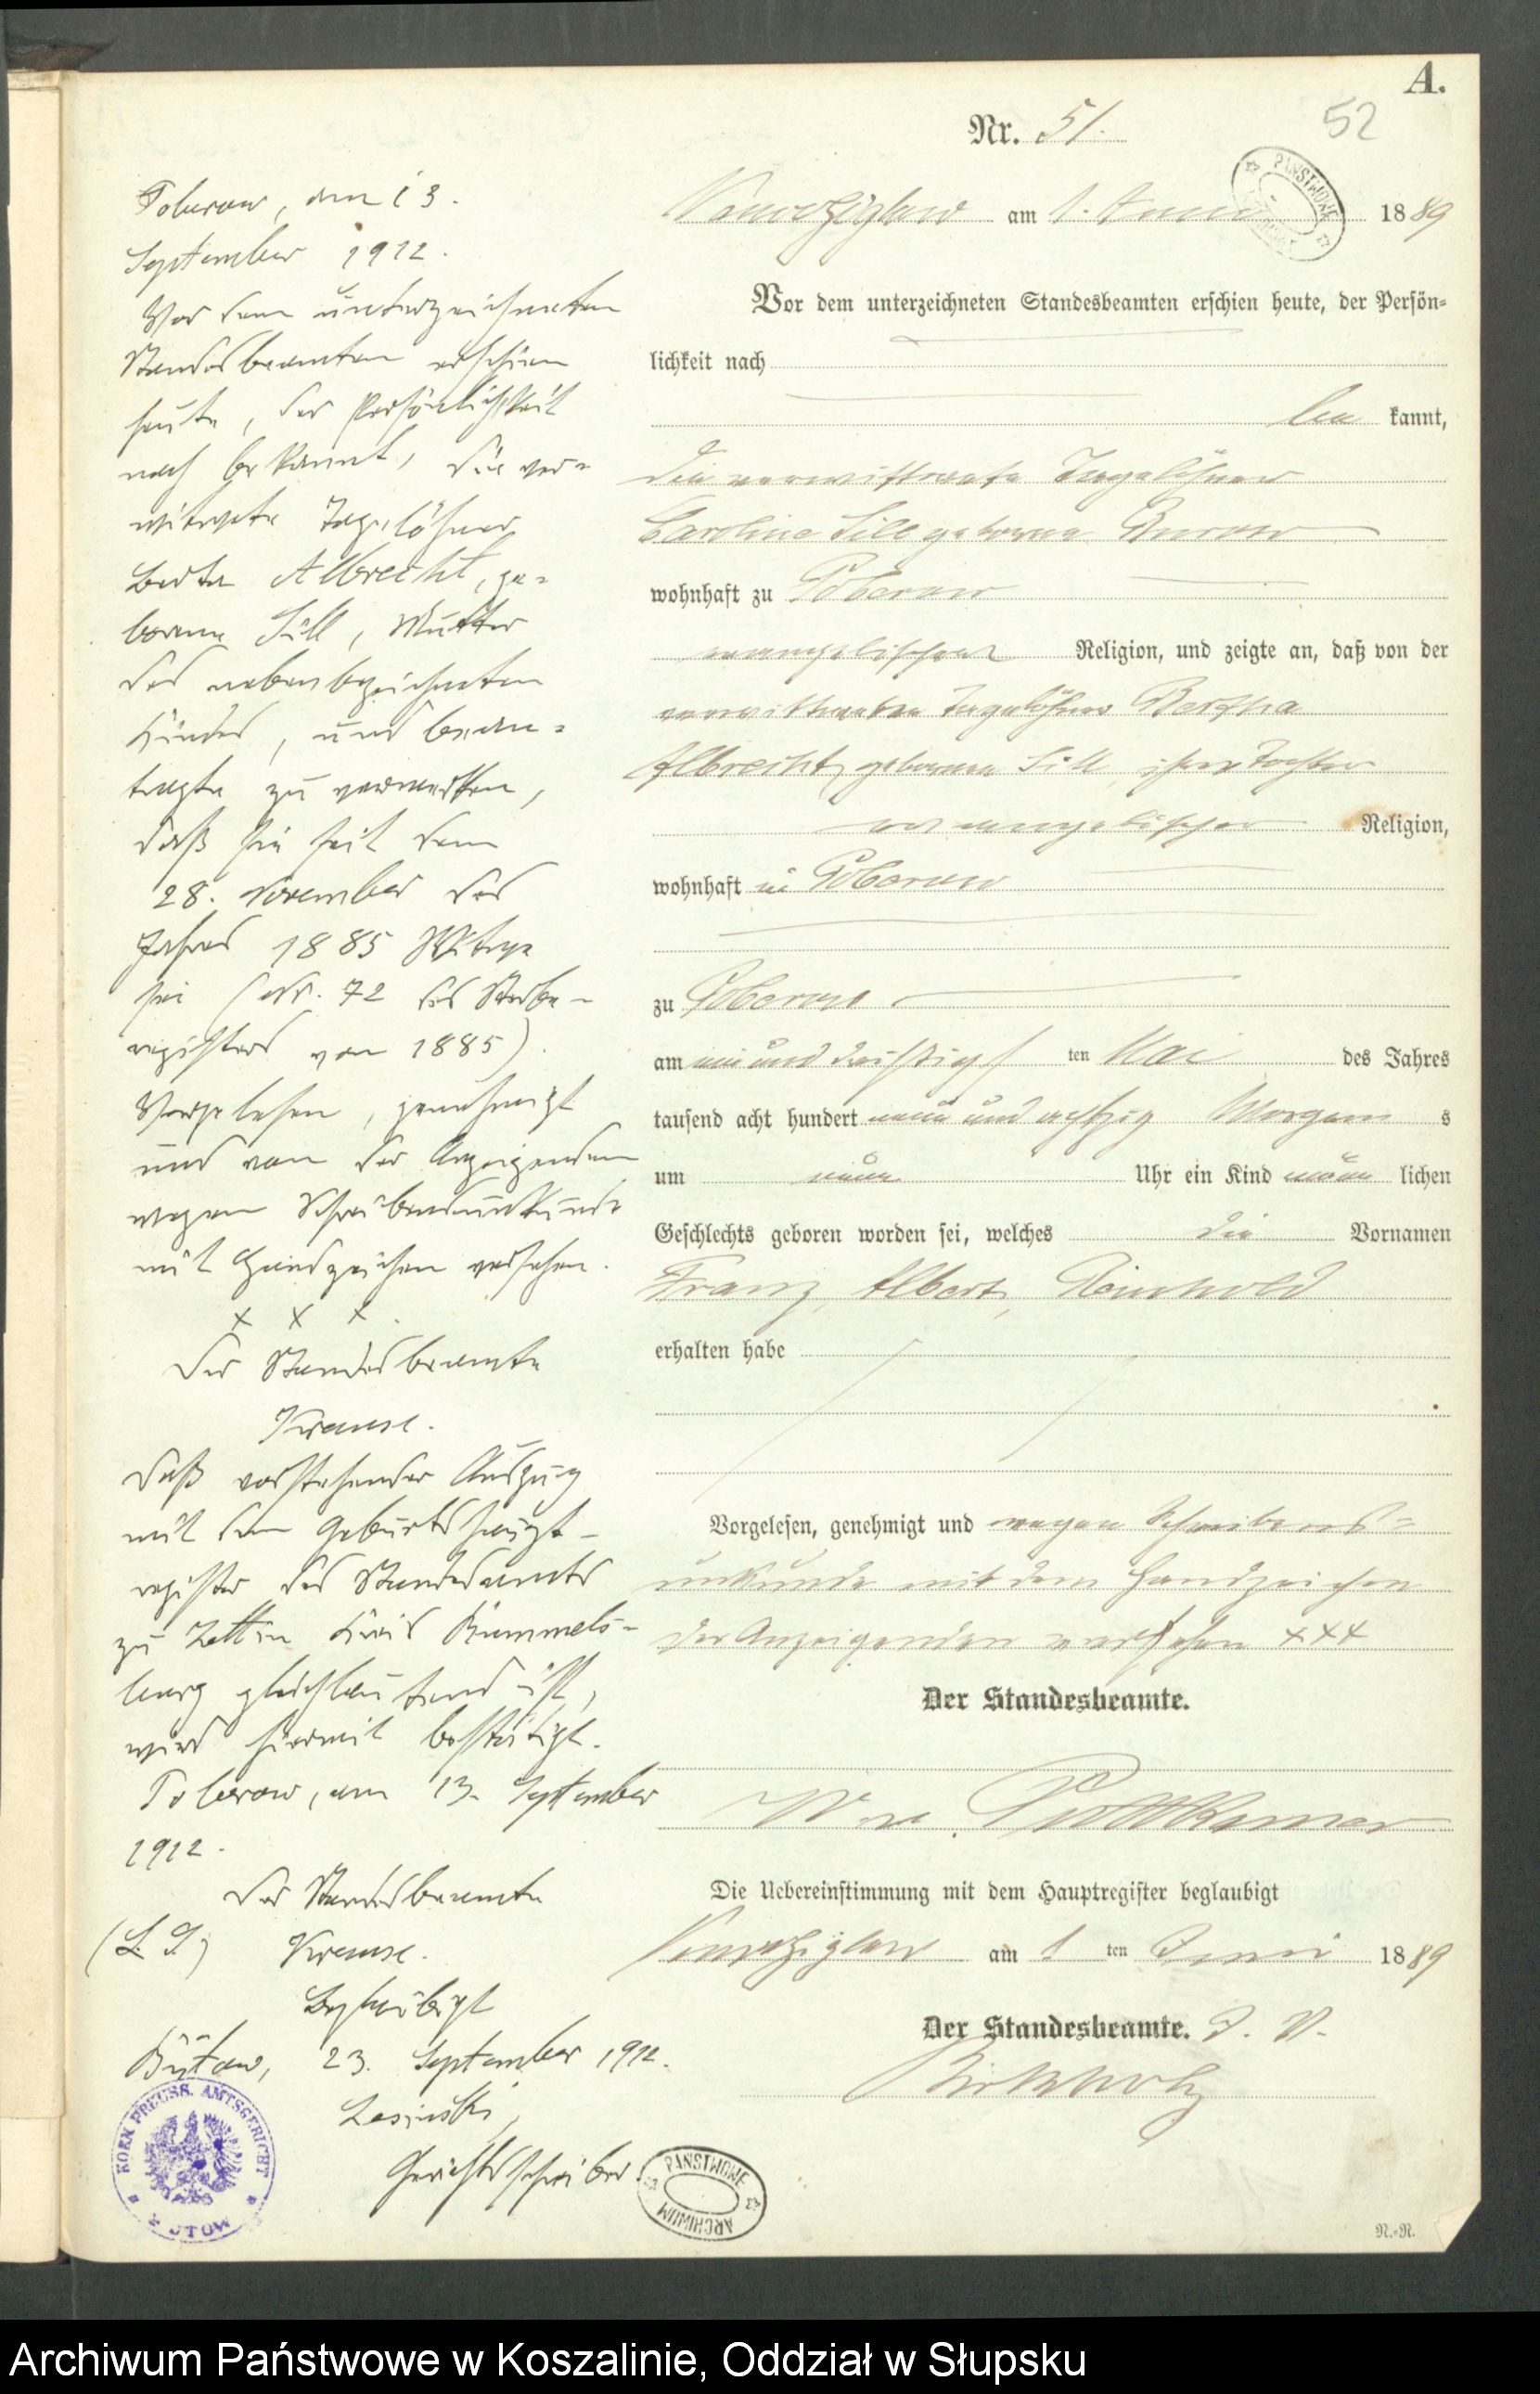 A.
Nr. 51.
52
am 1. Juni 1889
Vor dem unterzeichneten Standesbeamten erschien heute, der Persön-
lichkeit nach
be kannt,
die verwittwete Tagelöhner
Caroline Sill geborene
wohnhaft zu Poberow
evangelischer Religion, und zeigte an, daß von der
verwittweten Tagelöhner Bertha
Albrecht, geborenen Sill, ihrer Tochter
evangelischer Religion,
wohnhaft in Poberow
zu Poberow
am ein und dreißigs ten Mai des Jahres
tausend acht hundert neun und achtzig Morgen s
um neun Uhr ein Kind männ lichen
Geschlechts geboren worden sei, welches die Vornamen
Franz, Albert, Reinhold
erhalten habe
.
Vorgelesen, genehmigt und wegen Schreibens-
unkunde mit dem Handzeichen
der Anzeigenden versehen +++
Der Standesbeamte.
Puttkamer
Die Uebereinstimmung mit dem Hauptregister beglaubigt
am 1 ten Juni 1889
Der Standesbeamte. I. V.
R.=R.
Poberow, am 13.
September 1912.
Vor dem unterzeichneten
Standesbeamten erschien
heute, der Persönlichkeit
nach bekannt, die ver-
witwete Tagelöhner
Berta Albrecht, ge-
borene Sill, Mutter
des nebenbezeichneten
Kindes, und bean-
tragte zu vermerken,
daß sie seit dem
28. November des
Jahres 1885 Witwe
sei (Nr. 72 des Sterbe-
registers von 1885).
Vorgelesen, genehmigt
und von der Anzeigenden
wegen Schreibensunkunde
mit Handzeichen versehen.
x x x.
Der Standesbeamte
Krause.
Daß vorstehender Auszug
mit dem Geburtshaupt-
register des Standesamts
zu Zettin Kreis Rummels-
burg gleichlautend ist,
wird hiermit bestätigt.
Poberow, am 13. September
1912.
Der Standesbeamte
(L. S.) Krause.
Beglaubigt
Bütow, 23. September 1912.
Lesinski,
Gerichtsschreiber.
KOEN. PREUSS. AMTSGERICHT
PAŃSTWOWE
ARCHIWUM
PAŃSTWOWE
Archiwum Państwowe w Koszalinie, Oddział w Słupsku